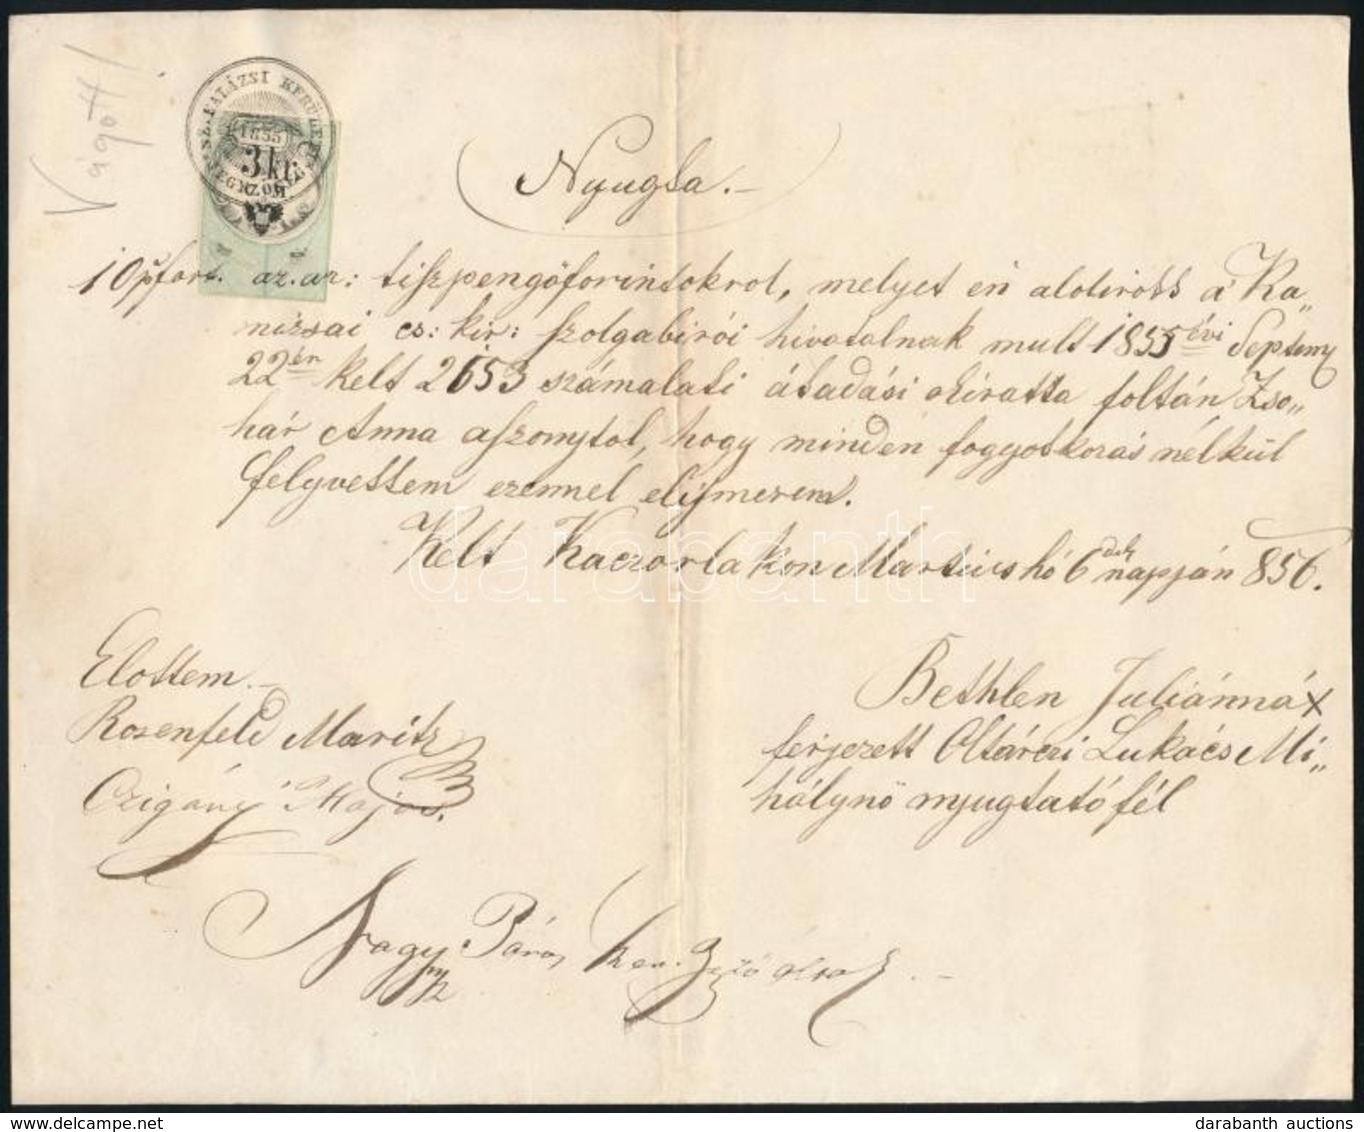 Vágott!
SZ. BALÁZSI KERÜLETI
1855
3 kr.
Nyugta.
10 pfort. az. az: tiszpengőforintokrol, melyet én alolirott a Ka„
nizsai cs: kir: szolgabirói hivatalnak mult 1855 évi Septem
22én kelt 2653 számalati átadási okiratta foltán Zso„
hár Anna aszonytol, hogy minden fogyotkozás nélkül
felyvettem ezennel elismerem.
Kelt Kaczorlakon Martius hó 6dik napján 856.
Elottem.
Rosenfeld Moritz
Czigány Majos.
Bethlen Juliánná x
ferjezett Oltárczi Lukács Mi„
hálynö nyugtató fél
Nagy
darabanth
darabanth auctions